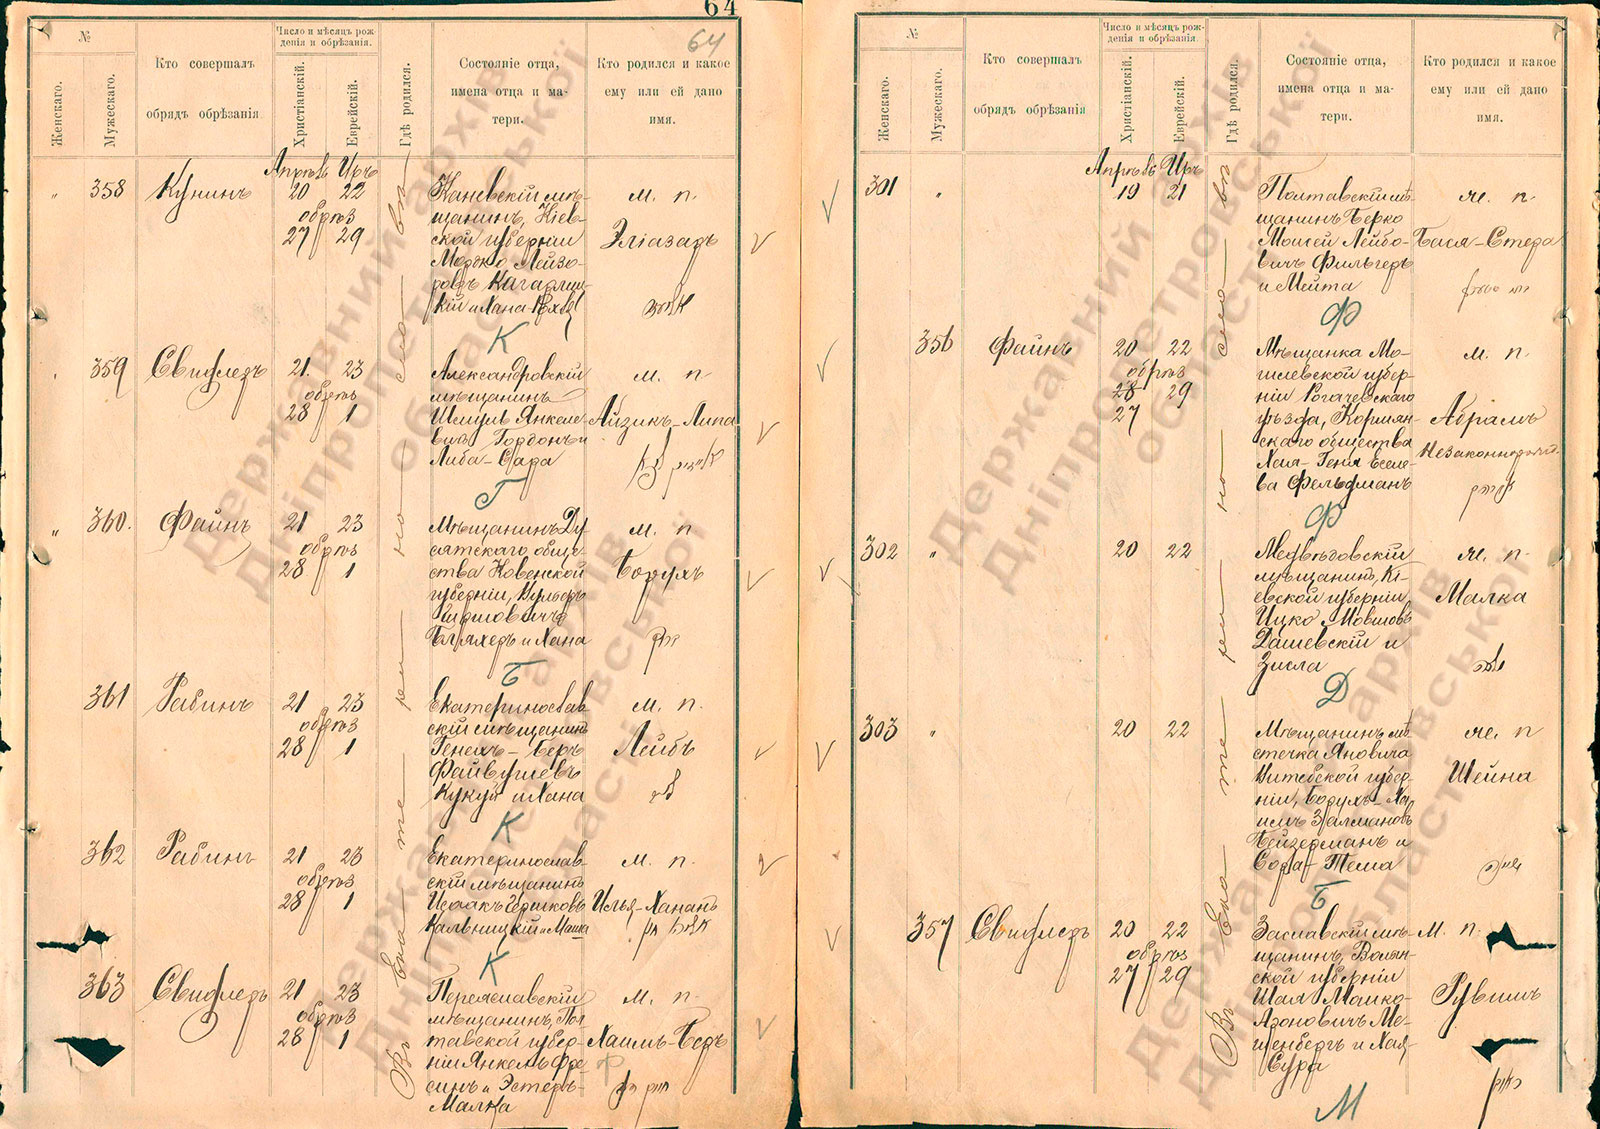 64
64
№
Женскаго.
Мужескаго.
Кто совершалъ
обрядъ обрѣзанія
Число и мѣсяцъ рож-
денія и обрѣзанія.
Христіанскій.
Еврейскій.
Гдѣ родился.
Состояніе отца,
имена отца и ма-
тери.
Кто родился и какое
ему или ей дано
имя.
Въ Ека те ри но сла вѣ
Апрѣль Иръ
" 358 Кунинъ 20 22
обрѣз
27 29
Каневскій мѣ-
щанинъ, Кіев-
ской губерніи
Мордко Лейзо-
ровъ Кагарлиц-
кій и Хана
м. п.
Эліазаръ
К
359 Свифлеръ 21. 23
обрѣз
28 1
Александровскій
мѣщанинъ
Шмуль Янкеле-
вичъ Гордонъ и
Либа-Сара
м. п.
Айзикъ-Липа
Г
" 360. Файнъ 21 23
обрѣз
28 1
Мѣщанинъ Ду-
сятскаго обще-
ства Ковенской
губерніи, Вульфъ
Гиршовичъ
Бляхеръ и Хана
м. п.
Борухъ
Б
361 Рабинъ 21 23
обрѣз
28 1
Екатеринослав-
скій мѣщанинъ
Генехъ-Беръ
Файвушевъ
Кукуй и Хана
м. п.
Лейбъ
К
362 Рабинъ 21 23
обрѣз
28 1
Екатеринослав-
скій мѣщанинъ
Исаакъ Гершковъ
Кальницкій и Маша
м. п.
Илья-Хананъ
К
363 Свифлеръ 21 23
обрѣз
28 1
Переяславскій
мѣщанинъ, Пол-
тавской губер-
ніи Янкель Фре-
синъ и Эстеръ-
Малка
м. п.
Хаимъ-Беръ
Ф
№
Женскаго.
Мужескаго.
Кто совершалъ
обрядъ обрѣзанія
Число и мѣсяцъ рож-
денія и обрѣзанія.
Христіанскій.
Еврейскій.
Гдѣ родился.
Состояніе отца,
имена отца и ма-
тери.
Кто родился и какое
ему или ей дано
имя.
Въ Ека те ри но сла вѣ
Апрѣль Иръ
301 " 19 21
Полтавскій мѣ-
щанинъ Берко
Моисей Лейбо-
вичъ Фильгеръ
и Мейта
же. п.
Бася-Стера
Ф
356 Файнъ 20 22
обрѣз
28 29
27
Мѣщанка Мо-
гилевской губер-
ніи Рогачевскаго
уѣзда, Кормян-
скаго общества
Хая-Геня Еселе-
ва Фельдманъ
м. п.
Абрамъ
Незаконнорожд.
Ф
302 " 20 22
Медвѣдовскій
мѣщанинъ, Кі-
евской губерніи
Ицко Мовшовъ
Дашевскій и
Зисла
же. п.
Малка
Д
303 " 20 22
Мѣщанинъ мѣ-
стечка Яновича
Витебской губер-
ніи, Борухъ-Ха-
имъ Залмановъ
Бейзерманъ и
Сора-Тема
же. п
Шейна
Б
357 Свифлеръ 20 22
обрѣз
27 29
Заславскій мѣ-
щанинъ, Волын-
ской губерніи
Шая Мошко-
Азоновичъ Ме-
шенбергъ и Хая-
Сура
м. п.
Рувимъ
М
Державний архів
Дніпропетровської
області